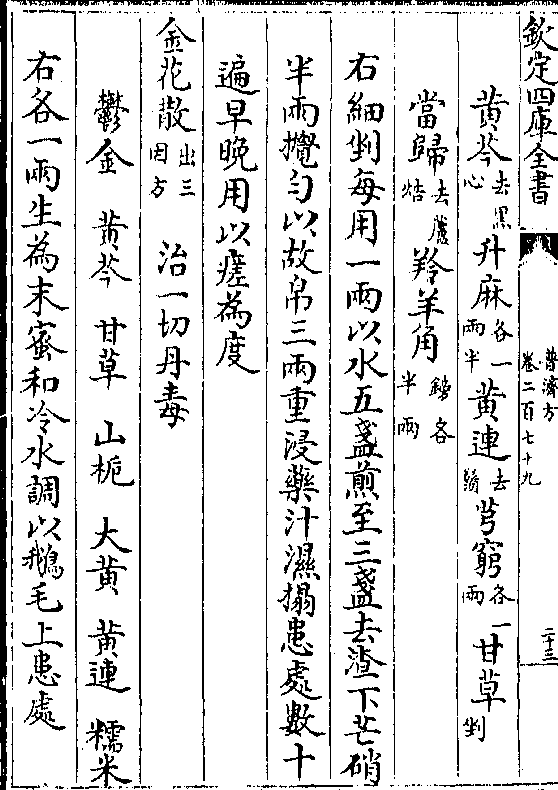 欽定四庫全書
普濟方
卷二百七十九
二十三
黄芩去黑心 升麻各一兩半 黄連去鬚 芎藭各一兩 甘草剉
當歸去蘆焙 羚羊角鎊各半兩
右細剉每用一兩以水五盞煎至三盞去渣下芒硝
半兩攪勻以故帛三兩重浸藥汁濕搨患處數十
遍早晚用以瘥為度
金花散出三因方 治一切丹毒
鬱金 黄芩 甘草 山梔 大黄 黄連 糯米
右各一兩生為末蜜和冷水調以鵝毛上患處